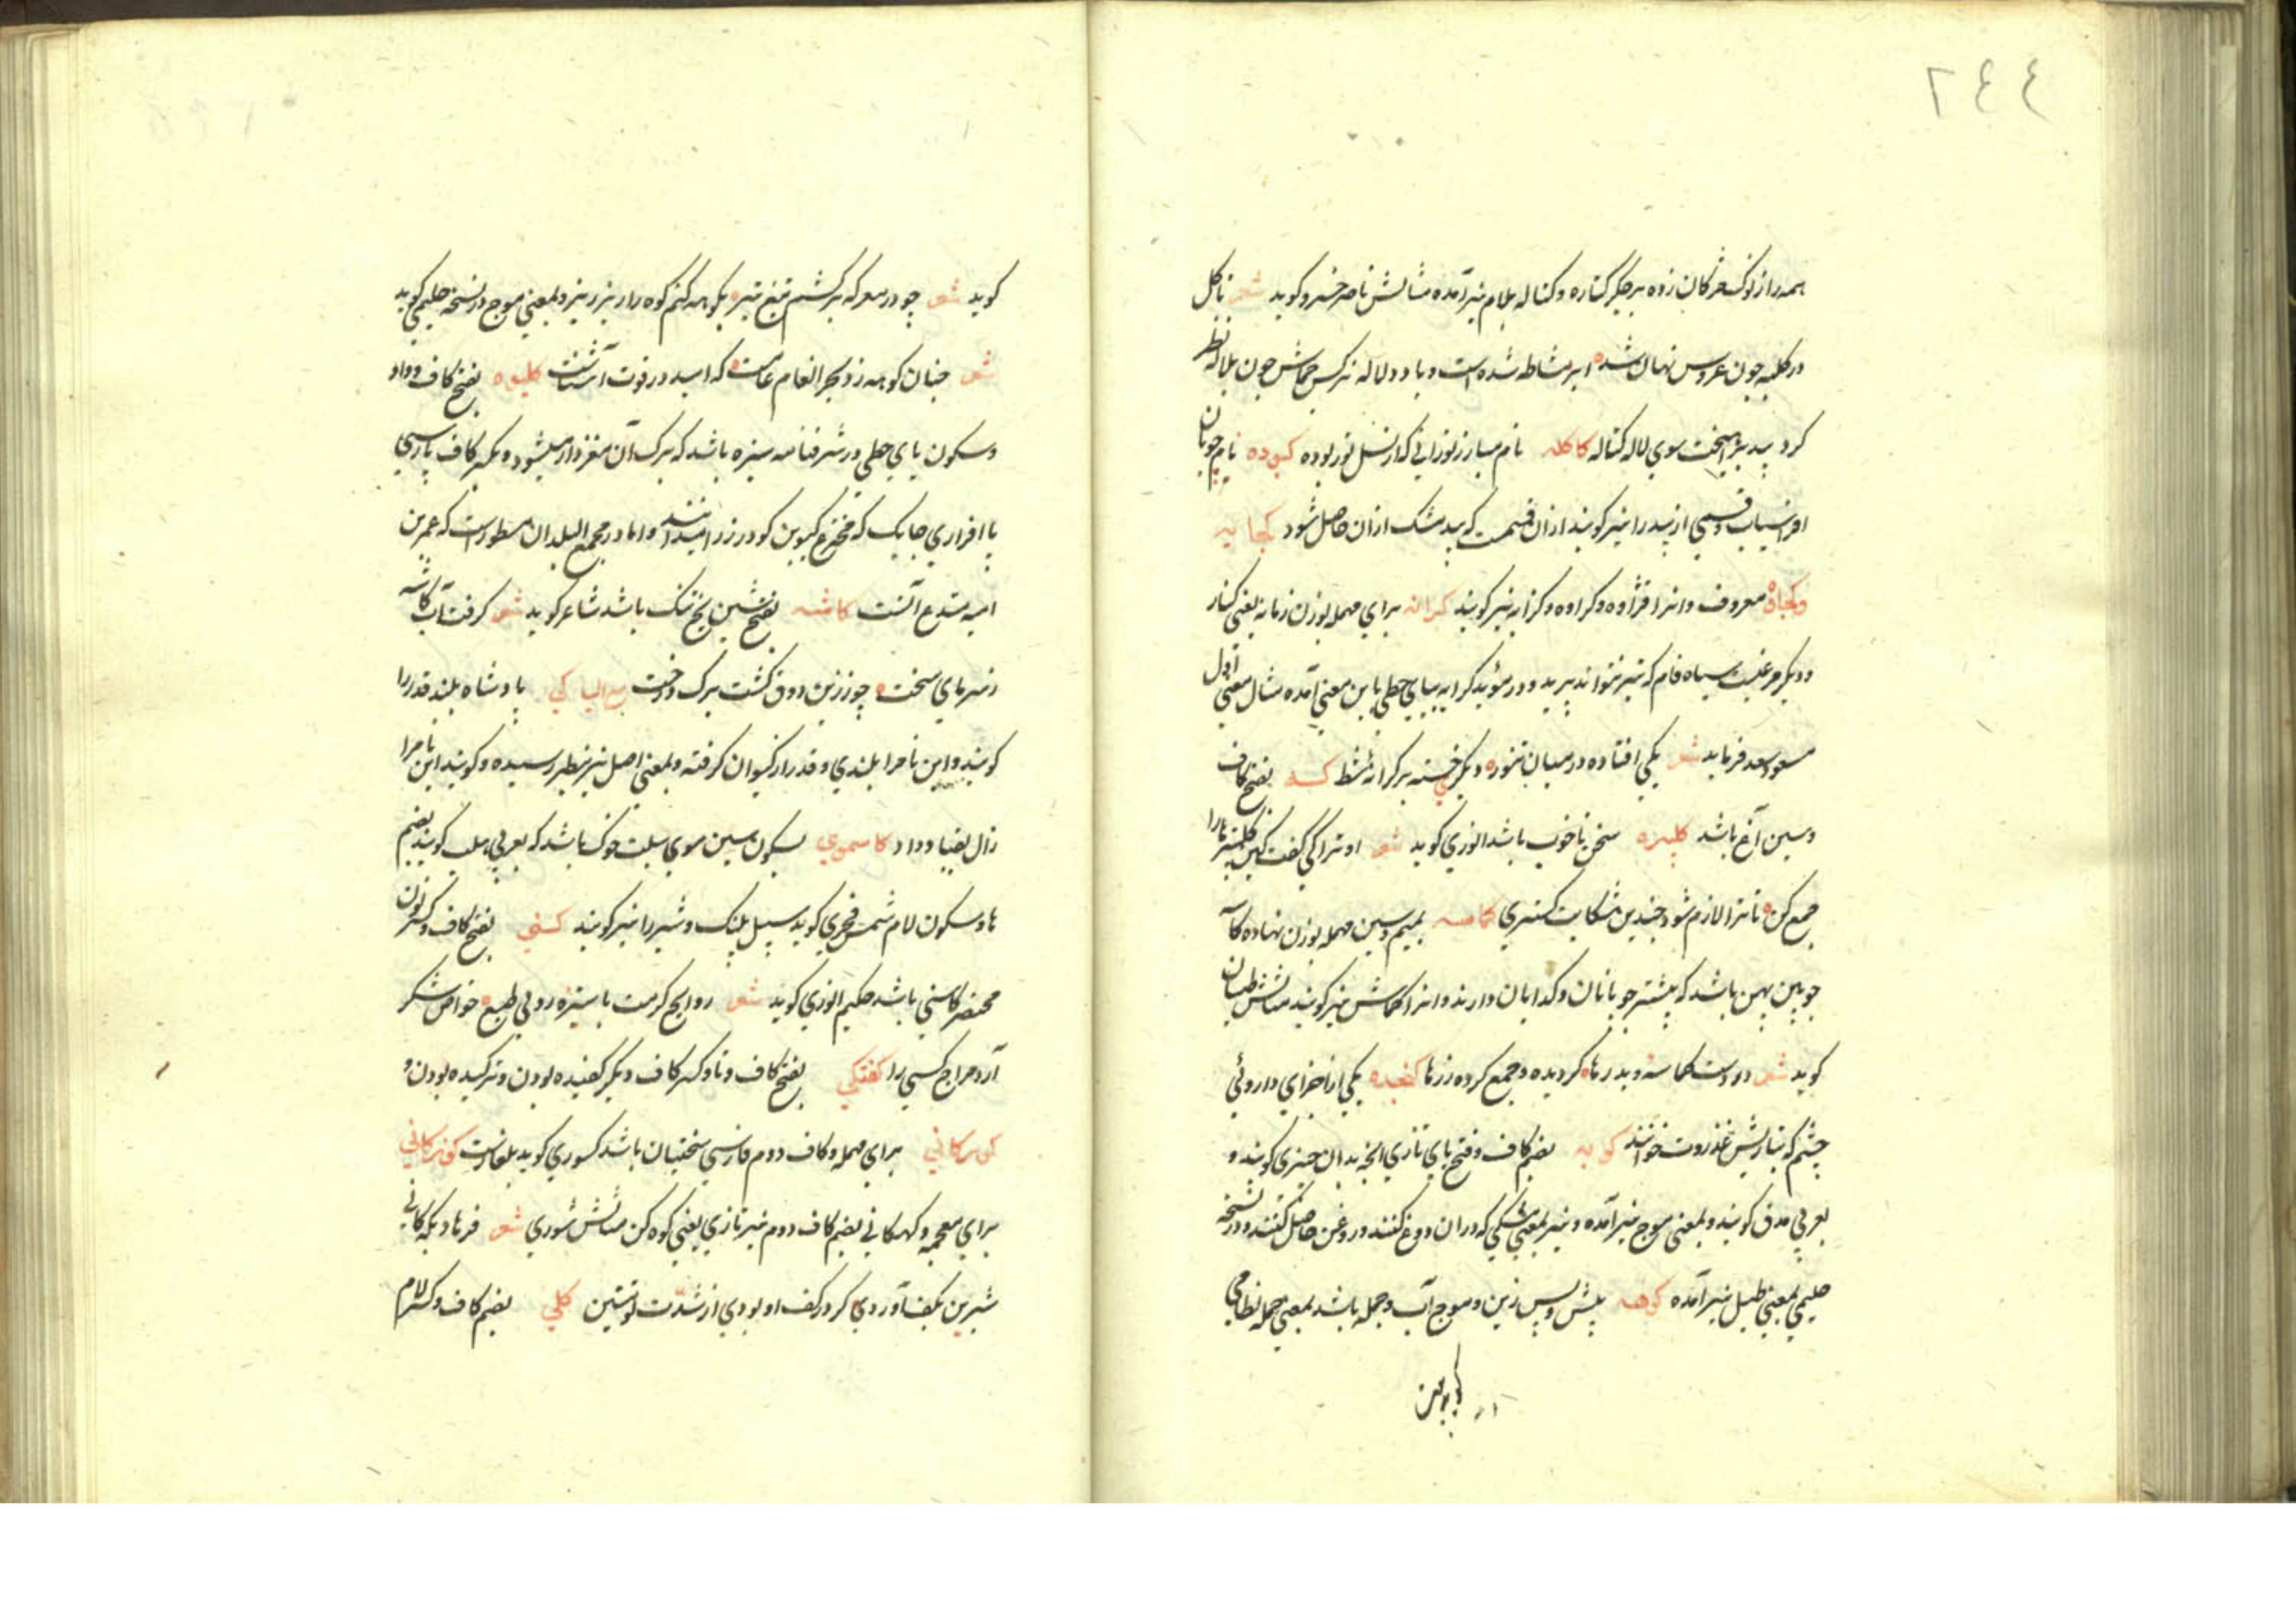 ٢٤٤
همه را از نوک مژکان زده بر جکر کتاره و کتاله بلام نیز آمده مثالش ناصر خسرو کوید شعر تا کل
در کلبه چون عروس نهان شده ابر مشاطه شده است و باد دلاله نرکس جماش چون بلاله نظر
کرد بید برآهیخت سوی لاله کتاله کاکله نام مبارز تورانی که از نسل تور بوده کبوده نام چوپان
افراسیاب و قسمی از بید را نیز کویند از آن قسمت که بید مشک ازان حاصل شود کجابه
و کجاوه معروف و انرا قژاوه و کژاوه و کزابه نیز کویند کرانه برای مهمله بوزن زمانه یعنی کنار
و دیکر مرغیست سیاه فام که تیز نتواند پرید و در مؤید کرایه بیای حطی باین معنی آمده مثال معنی اول
مسعود سعد فرماید شعر یکی افتاده در میان تنوره دیکر خسته بر کرانه شط کسه بفتح کاف
و سین آخ باشد کلپتره سخن ناخوب باشد انوری کوید شعر او ترا کی کفت کاین کلپترها را
جمع کن تا ترا لازم شود چندین شکایت کستری کماسه بمیم و سین مهمله بوزن نهاده کاسه
چوبین پهن باشد که بیشتر چوبانان و کدایان دارند و انرا کماش نیز کویند مثالش طیان
کوید شعر در دست کماسه و بدرها کردیده و جمع کرده زرها کنجده یکی از اجزای داروئی
چشم که بتازیش عنزروت خوانند کوبه بضم کاف و فتح بای تازی انچه بدان چیزی کوبند و
بعربی مدق کویند و بمعنی موج نیز آمده و نیز بمعنی مشکی که دران دوغ کنند و روغن حاصل کنند و در نسخه
حلیمی بمعنی طبل نیز آمده کوهه پیش و پس زین و موج آب و حمله باشد بمعنی حمله نظامی
کوید شعر چو در معرکه برکشم تیغ تیز بکوهه کنم کوه را ریز ریز و بمعنی موج در نسخه حلیمی کوید
شعر چنان کوهه زد بحر انعام عامت که امید در قوت آشناست کلیوه بفتح کاف و واو
و سکون یای حطی در شرفنامه سبزه باشد که برک آن مغزدار میشود و بکسر کاف پارسی
پا افزاری چابک که مخترع کیو بن کودرز را میدانند و اما در مجمع البلدان مسطور است که عمر بن
امیه مبتدع آنست کاشه بفتح شین یخ تنک باشد شاعر کوید شعر کرفت آب کاشه
ز سرمای سخت چو زرین ورق کشت برک درخت مع الیا کی پادشاه بلند قدر را
کویند و این نام را بلندی و قدر از کیوان کرفته و بمعنی اصل نیز بنظر رسیده و کویند این نام را
زال بقباد داد کاسموی بسکون سین موی سبلت خوک باشد که بعربی هلب کویند بضم
ها و سکون لام شمس فخری کوید سبیل پلنک و شیر را نیز کویند کسنی بفتح کاف و کسر نون
مختصر کاسنی باشد حکیم انوری کوید شعر روایح کرمت با ستیزه روئی طبع خواص شکر
آرد مزاج کسنی را کفتکی بفتح کاف و تا و کسر کاف دیکر کفیده بودن و ترکیده بودن و
کوزکانی برای مهمله و کاف دوم فارسی سختیان باشد کسوری کوید بلغارست کوزکانی
برای معجمه و کهکانی بضم کاف دوم نیز تازی یعنی کوه کن مثالش شوری شعر فرهاد بکه کانی
شیرین بکف آوردی کر در کف او بودی از شدت نوشتین کلی بضم کاف و کسر لام